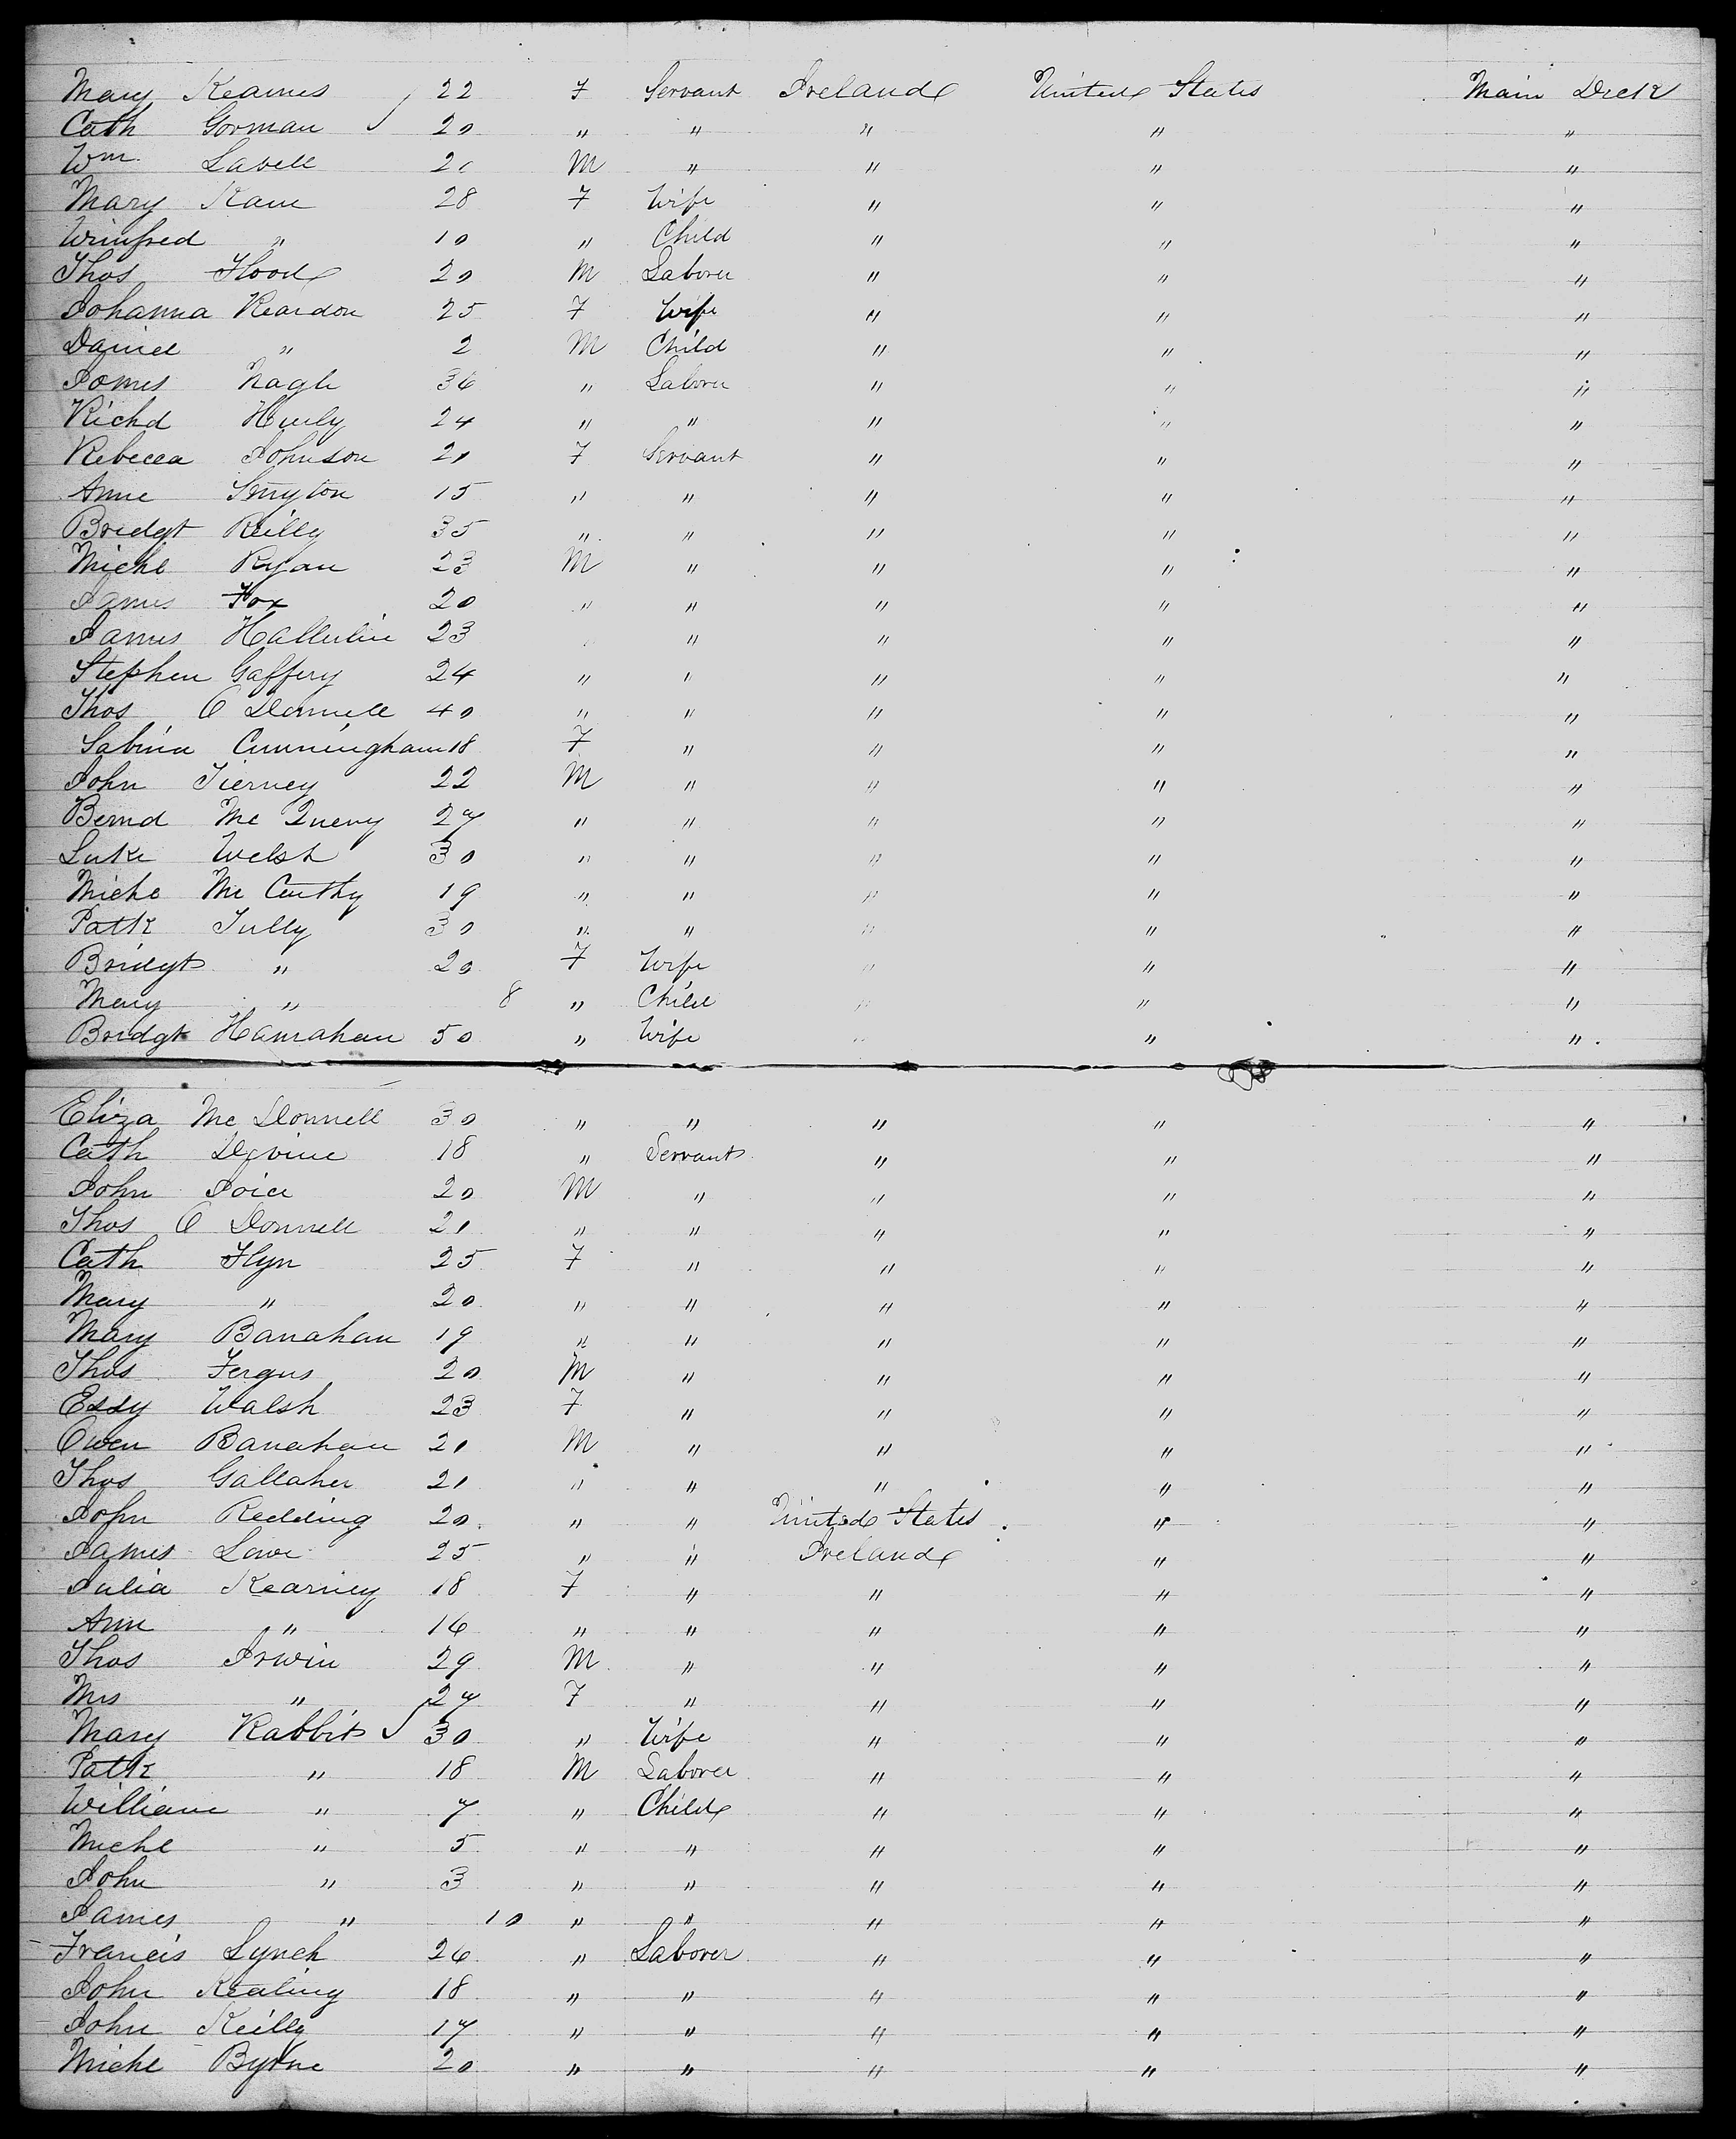 Mary Kearnes 22 F Servant Ireland United States Main Deck
Cath Gorman 20 " " " " "
Wm Lavell 20 M " " " "
Mary Kane 28 F Wife " " "
Winifred " 10 " Child " " "
Thos Flood 20 M Laborer " " "
Johanna Reardon 25 F Wife " " "
Daniel " 2 M Child " " "
James Nagle 36 " Laborer " " "
Richd Huely 24 " " " " "
Rebecca Johnson 21 F Servant " " "
Anne Smyton 15 " " " " "
Bridgt Reilly 35 " " " " "
Michl Ryan 23 M " " " "
James Fox 20 " " " " "
James Hallulin 23 " " " " "
Stephen Gaffery 24 " " " " "
Thos O Donnell 40 " " " " "
Sabina Cunningham 18 F " " " "
John Tierney 22 M " " " "
Bernd Mc Queny 27 " " " " "
Luke Welsh 30 " " " " "
Michl Mc Carthy 19 " " " " "
Patk Tully 30 " " " " "
Bridgt " 20 F Wife " " "
Mary " 8 " Child " " "
Bridgt Hanrahan 50 " Wife " " "
Eliza Mc Donnell 30 " " " " "
Cath Devine 18 " Servant " " "
John Joice 20 M " " " "
Thos O Donnell 21 " " " " "
Cath Flyn 25 F " " " "
Mary " 20 " " " " "
Mary Banahan 19 " " " " "
Thos Fergus 20 M " " " "
Essy Walsh 23 F " " " "
Owen Banahan 21 M " " " "
Thos Gallaher 21 " " " " "
John Redding 20 " " United States " "
James Lowe 25 " " Ireland " "
Julia Kearney 18 F " " " "
Ann " 16 " " " " "
Thos Irwin 29 M " " " "
Mrs " 27 F " " " "
Mary Rabbit 30 " Wife " " "
Patk " 18 M Laborer " " "
William " 7 " Child " " "
Michl " 5 " " " " "
John " 3 " " " " "
James " 10 " " " " "
Francis Lynch 26 " Laborer " " "
John Keating 18 " " " " "
John Reilly 17 " " " " "
Michl Byrne 20 " " " " "